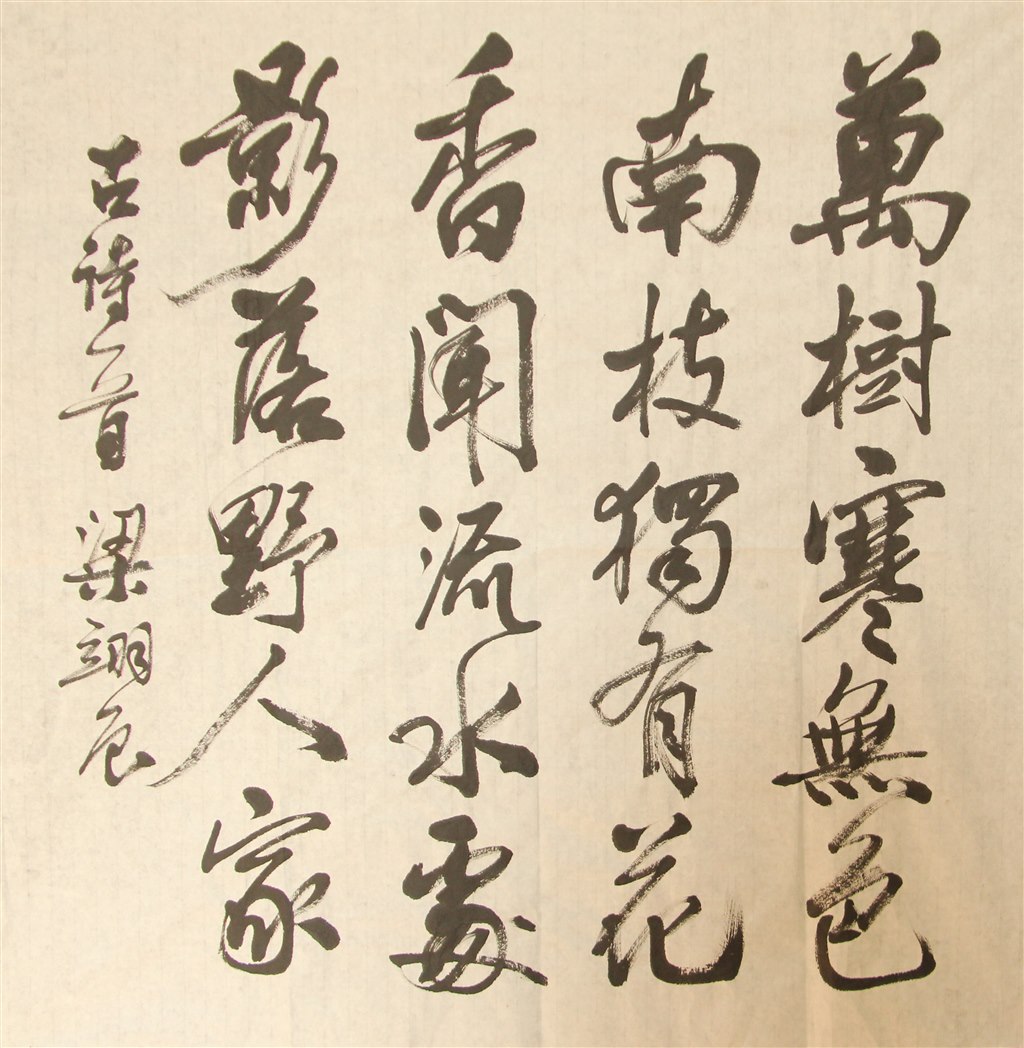 萬樹寒無色
南枝獨有花
香聞流水處
影落野人家
古詩一首 梁翊辰